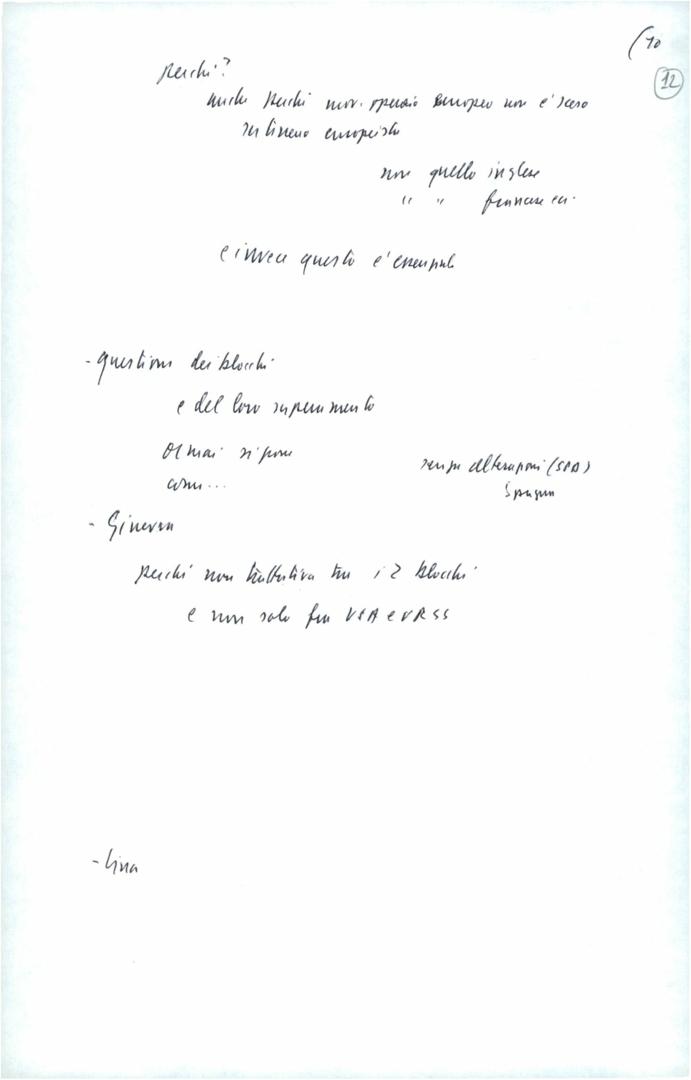 (10
12
Perché?
anche perché mov. operaio europeo non è sceso
su terreno europeista
non quello inglese
" " francese ecc.
e invece questo è essenziale
- questione dei blocchi
e del loro superamento
Ormai si pone
come...
senza alterazioni (SPD)
Spagna
- Ginevra
perché non trattativa tra i 2 blocchi
e non solo fra USA e URSS
- Cina